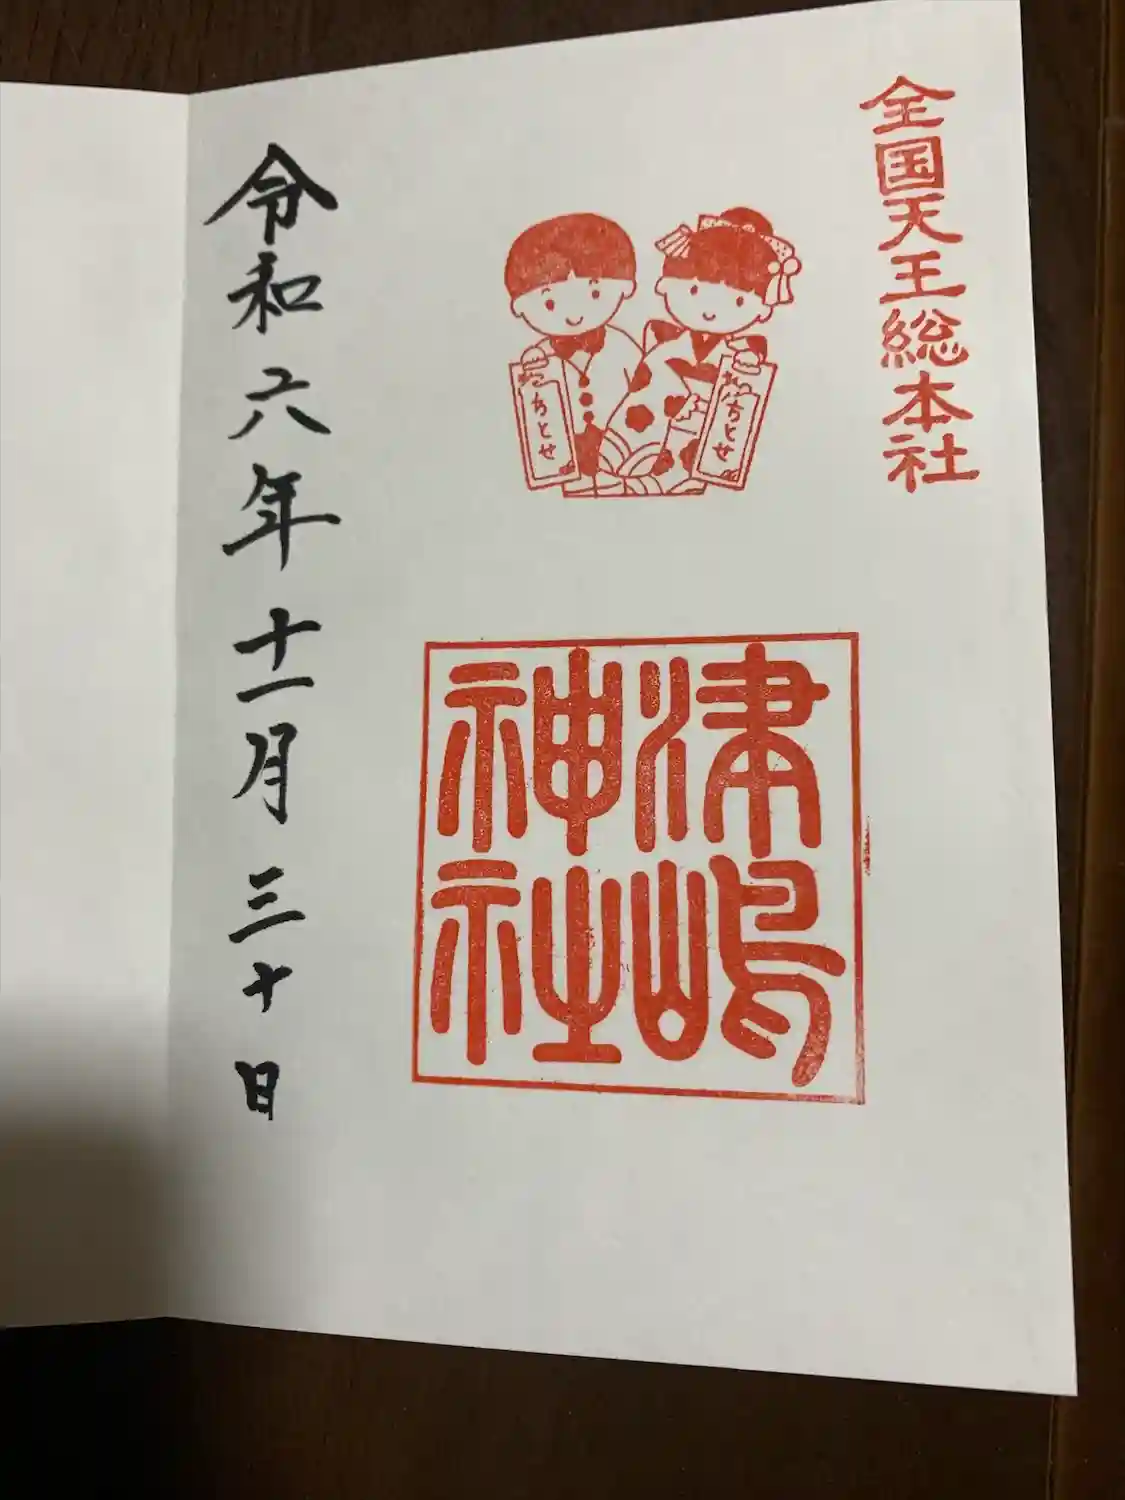 全国天王総本社
ちとせ
ちとせ
津嶋
神社
令和六年十一月三十日